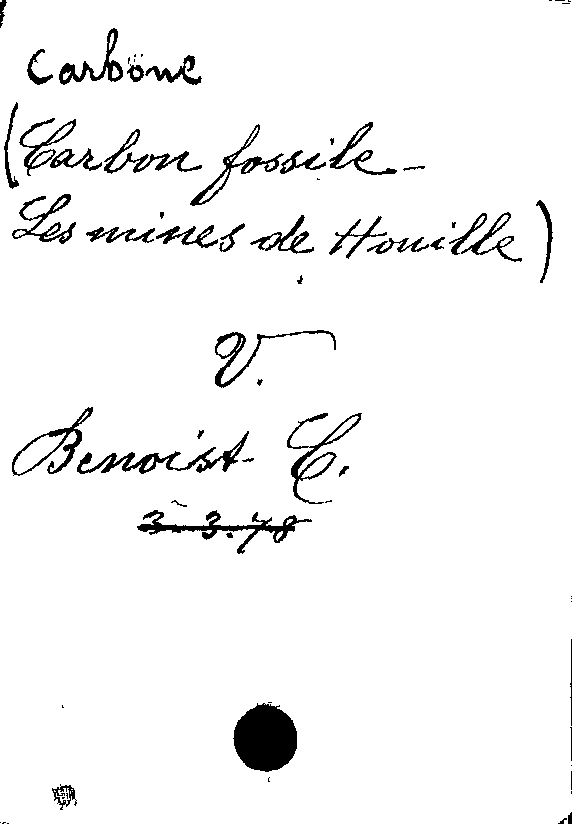 Carbone
(Carbon fossile -
Les mines de Houille)
V.
Benoist C.
3. 3.78